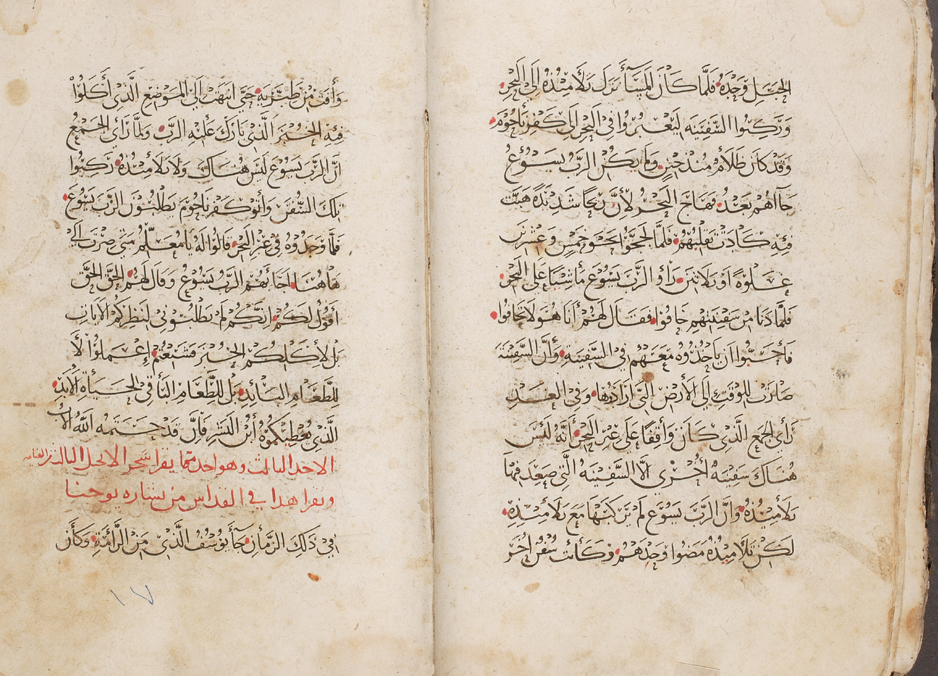 الجبل وحده فلما كان المسآ نزل تلاميذه إلى البحر
وركبوا السفينه ليعبروا في البحر الى كفرناحوم
وقد كان ظلام منذ حين ولم يكن الرب يسوع
جاآهم بعد فهاج البحر لأن ريحا شديدة هبت
فيه كادت تقلبهم فلما لججوا نحو خمس وعشرين
غلوة او ثلاثين رأوا الرب يسوع ماشيا على البحر
فلما دنا من سفينتهم خافوا فقال لهم أنا هو لا تخافوا
فأحبوا ان ياخذوه معهم في السفينة وأن السفينة
صارت للوقت إلى الأرض التي ارادوها وفي الغد
رأى الجمع الذي كان واقفا على عبر البحر أنه ليس
هناك سفينه أخرى الا السفينه التي صعد فيها
تلاميذه وان الرب يسوع لم يركبها مع تلاميذه
لكن تلاميذه مضوا وحدهم وكانت سفن أخر
وأفت من طبريه حتى انتهت الى الموضع الذي أكلوا
فيه الخبز الذي بارك عليه الرب ولما رأى الجمع
ان الرب يسوع ليس هناك ولا تلاميذه ركبوا
تلك السفن وأتوا كفرناحوم يطلبون الرب يسوع
فلما وجدوه في عبر البحر قالوا له يا معلم متى صرت الى
هاهنا اجابهم الرب يسوع وقال لهم الحق الحق
اقول لكم انكم لم تطلبوني لنظركم الآيات
بل لأكلكم الخبز فشبعتم إعملوا لا
للطعام البائد بل للطعام الباقي في الحياة الأبد
الذي يعطيكموه ابن البشر فإن قد ختمه الله الأب
الاحد الثالث وهو احد
ويقرا هدا في القداس من بشاره يوحنا
في ذلك الزمان جآ يوسف الذي من الرامة وكان
١٧